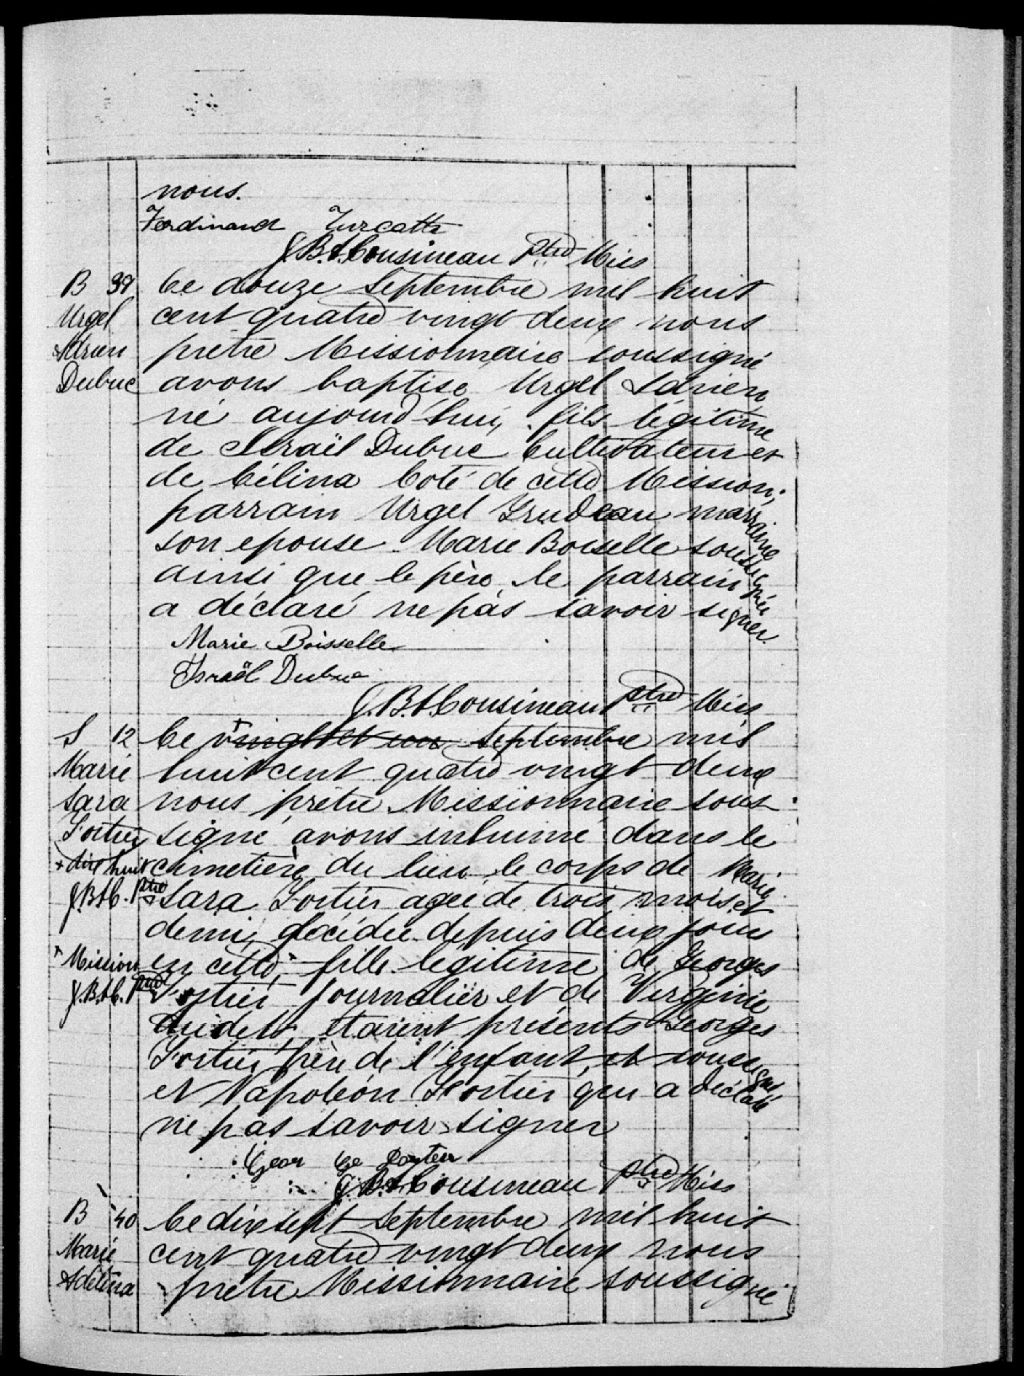 nous.
Ferdinand Turcotte
J.B.A. Cousineau ptre Miss
B 39 Ce douze Septembre mil huit
Urgel cent quatre vingt deux nous
Adrien prêtre Missionnaire soussigné
Dubuc avons baptisé Urgel Adrien
né aujourd'hui, fils légitime
de Israël Dubuc Cultivateur et
de Célina Coté de cette Mission;
parrain Urgel Trudeau marraine
son epouse Marie Boiselle soussignés
ainsi que le père le parrain
a déclaré ne pas savoir signer
Marie Boisselle
Israël Dubuc
J.B.A. Cousineau ptre Miss
S 12 Ce + vingt et un Septembre mil
Marie huit cent quatre vingt deux
Sara nous prêtre Missionnaire sous
Fortier signé avons inhumé dans le
+ dix huit cimetière du lieu le corps de Marie
J.B.A.C. ptre Sara Fortier agée de trois mois et
demi, décédée depuis deux jours
+ Mission en cette, + fille légitime de Georges
J.B.A.C. ptre Fortier Journalier et de Virginie
Audette, étaient présents Georges
Fortier père de l'enfant, et soussigné
et Napoléon Fortier qui a déclaré
ne pas savoir signer
J.B.A. Cousineau ptre Miss
B 40 Ce dix sept Septembre mil huit
Marie cent quatre vingt deux nous
Adélina prêtre Missionnaire soussigné